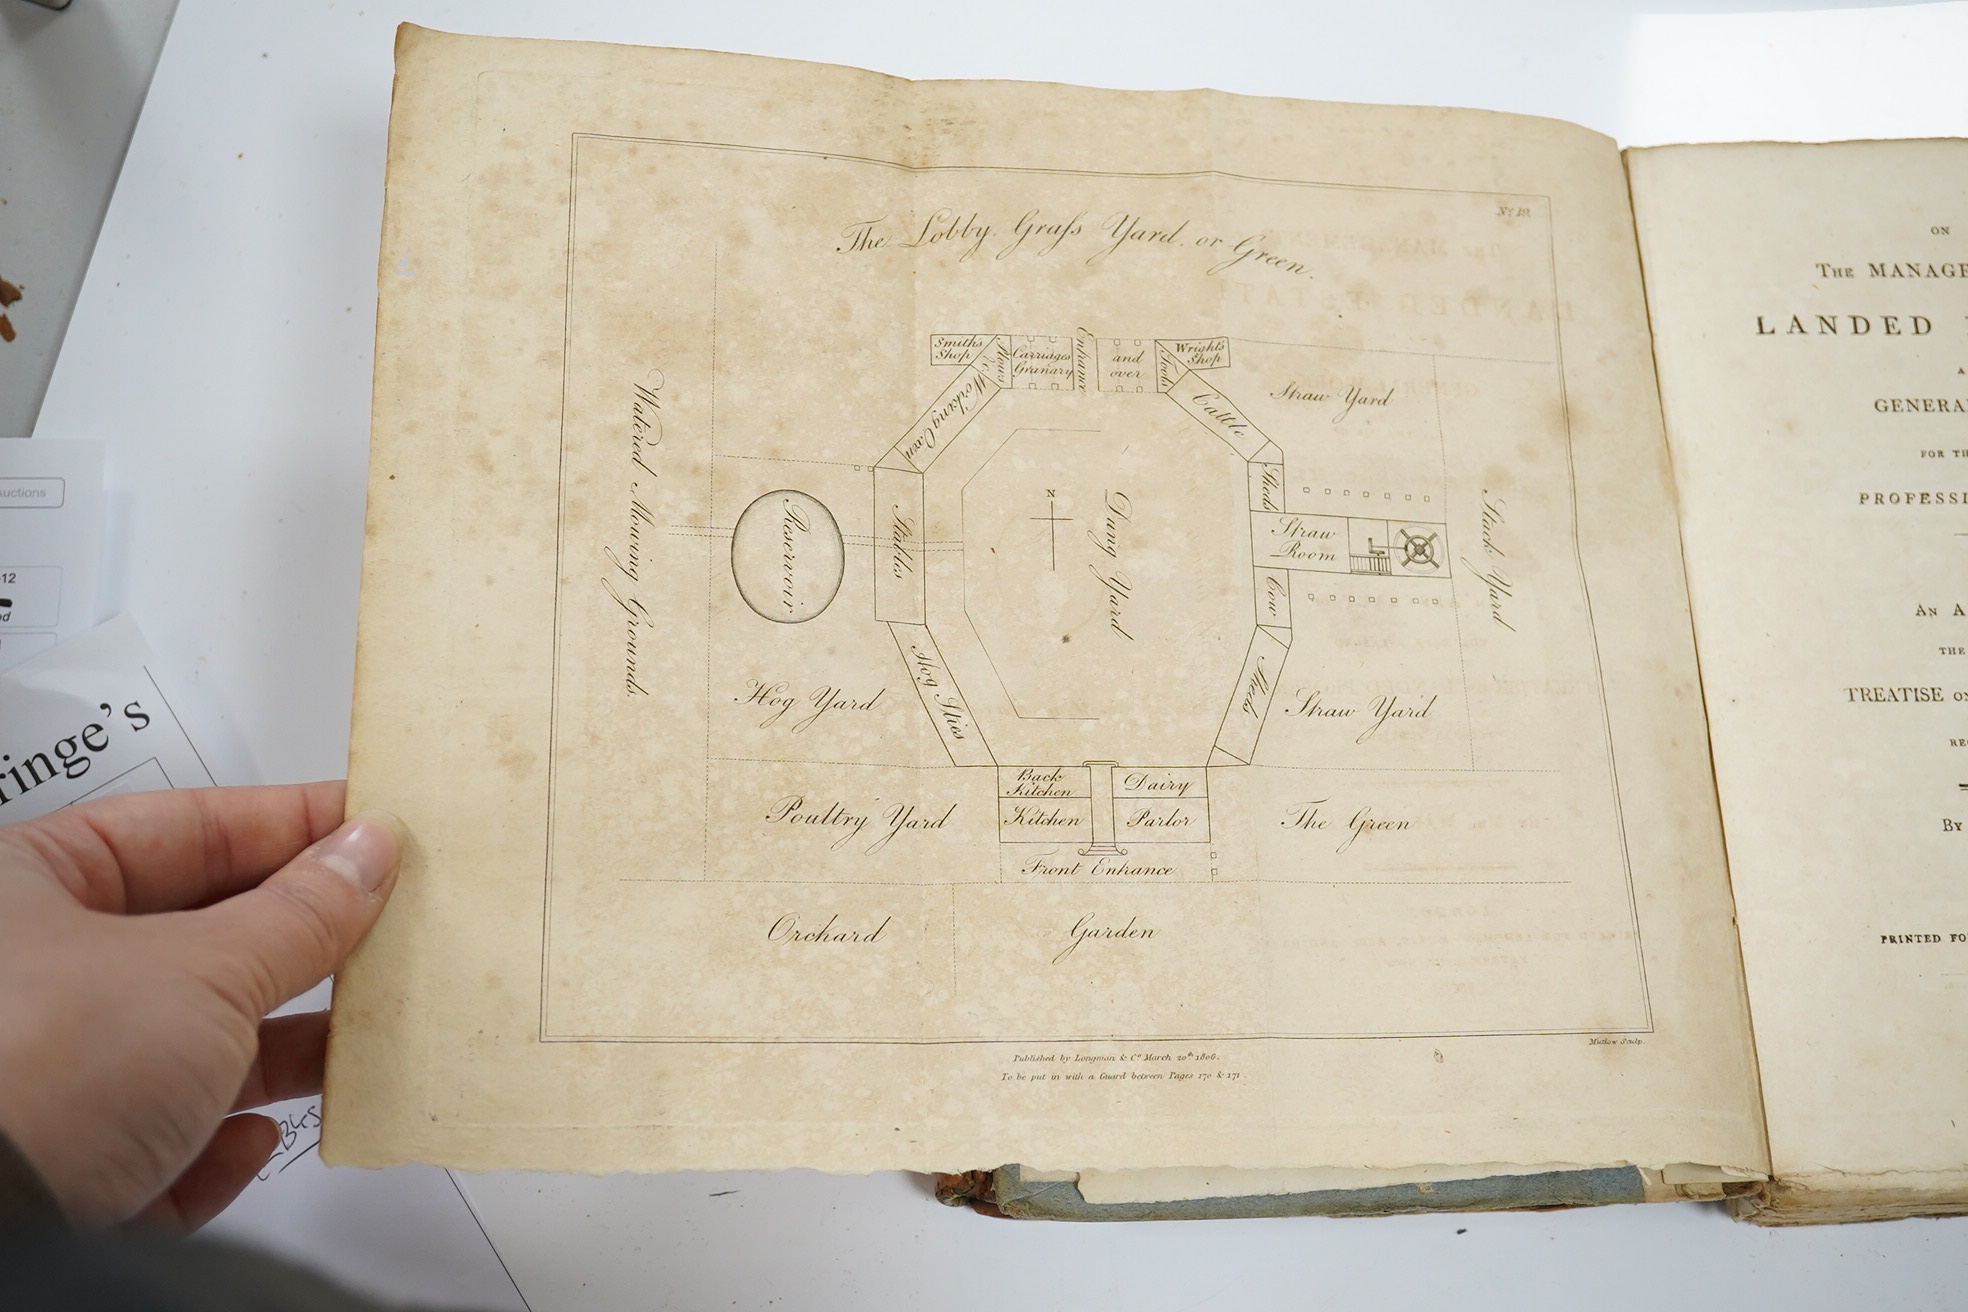 Nº 18.
The Lobby, Graſs Yard, or Green.
Smiths
Shop
Plows
&c
Carriages
Granary
Entrance
and
over
Tools
Wrights
Shop
Working Oxen
Cattle
Sheds
Straw Yard
Watered Mowing Grounds.
Reservoir
Stables
N
Dung Yard
Straw
Room
Stack Yard
Cow
Sheds
Hog Yard
Hog Sties
Straw Yard
Back
Kitchen
Dairy
Poultry Yard
Kitchen
Parlor
The Green
Front Entrance
Orchard
Garden
Published by Longman & Cº. March 20th 1806.
To be put in with a Guard between Pages 170 & 171.
Mutlow Sculp.
ON
THE MANAGE
LANDED
A
GENERA
FOR TH
PROFESSI
AN A
THE
TREATISE ON
RE
BY
PRINTED FO
uctions
12
ed
ringe's